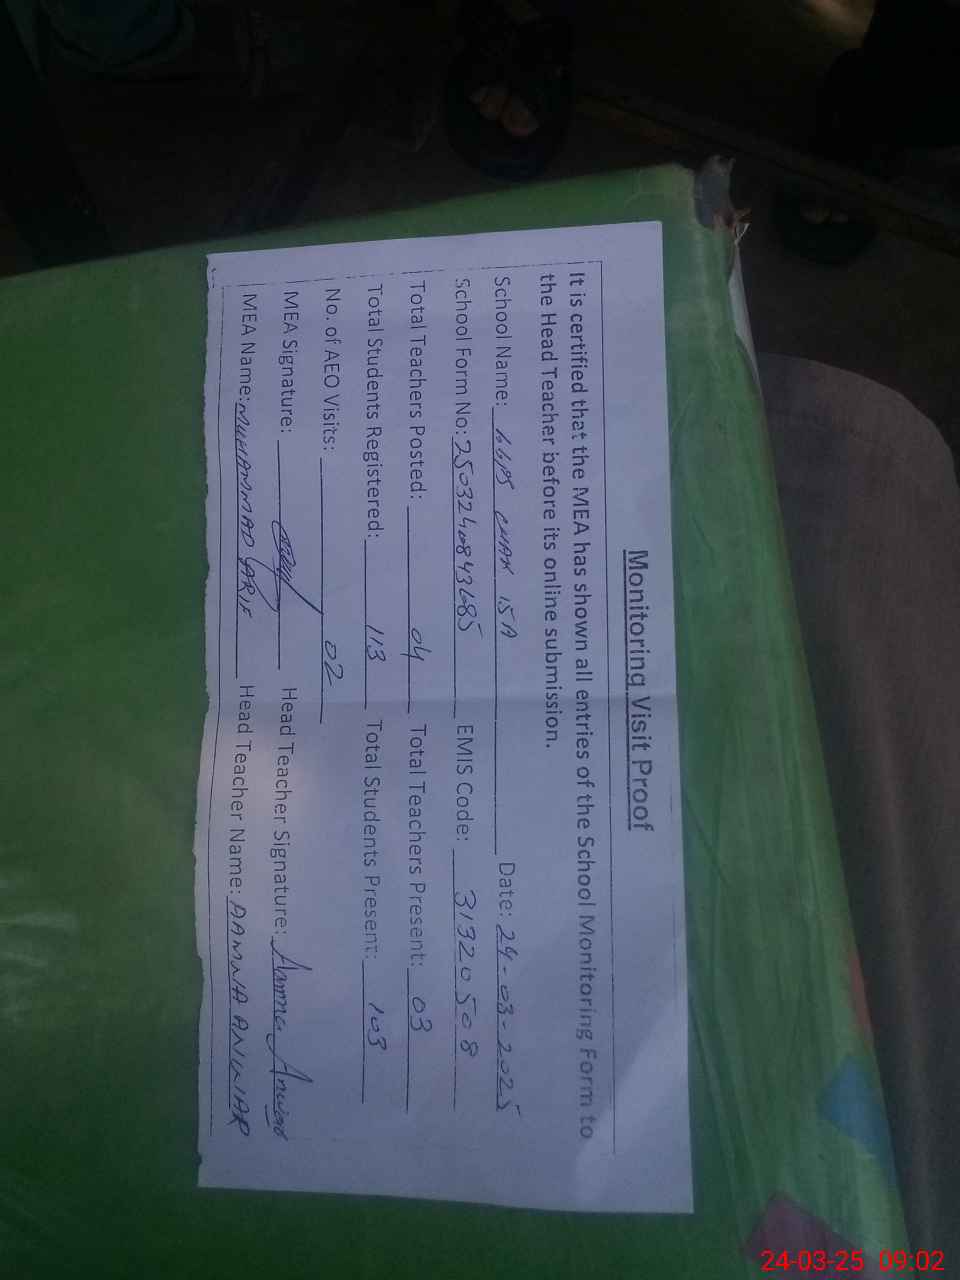 Monitoring Visit Proof
It is certified that the MEA has shown all entries of the School Monitoring Form to
the Head Teacher before its online submission.
School Name: GGPS CHAK 15A Date: 24-03-2025
School Form No: EMIS Code: 31320508
Total Teachers Posted: 04 Total Teachers Present: 03
Total Students Registered: 113 Total Students Present: 103
No. of AEO Visits: 02
MEA Signature: Head Teacher Signature: Aamna Anwar
MEA Name: MUHAMMAD ARIF Head Teacher Name: AAMNA ANWAR
24-03-25 09:02